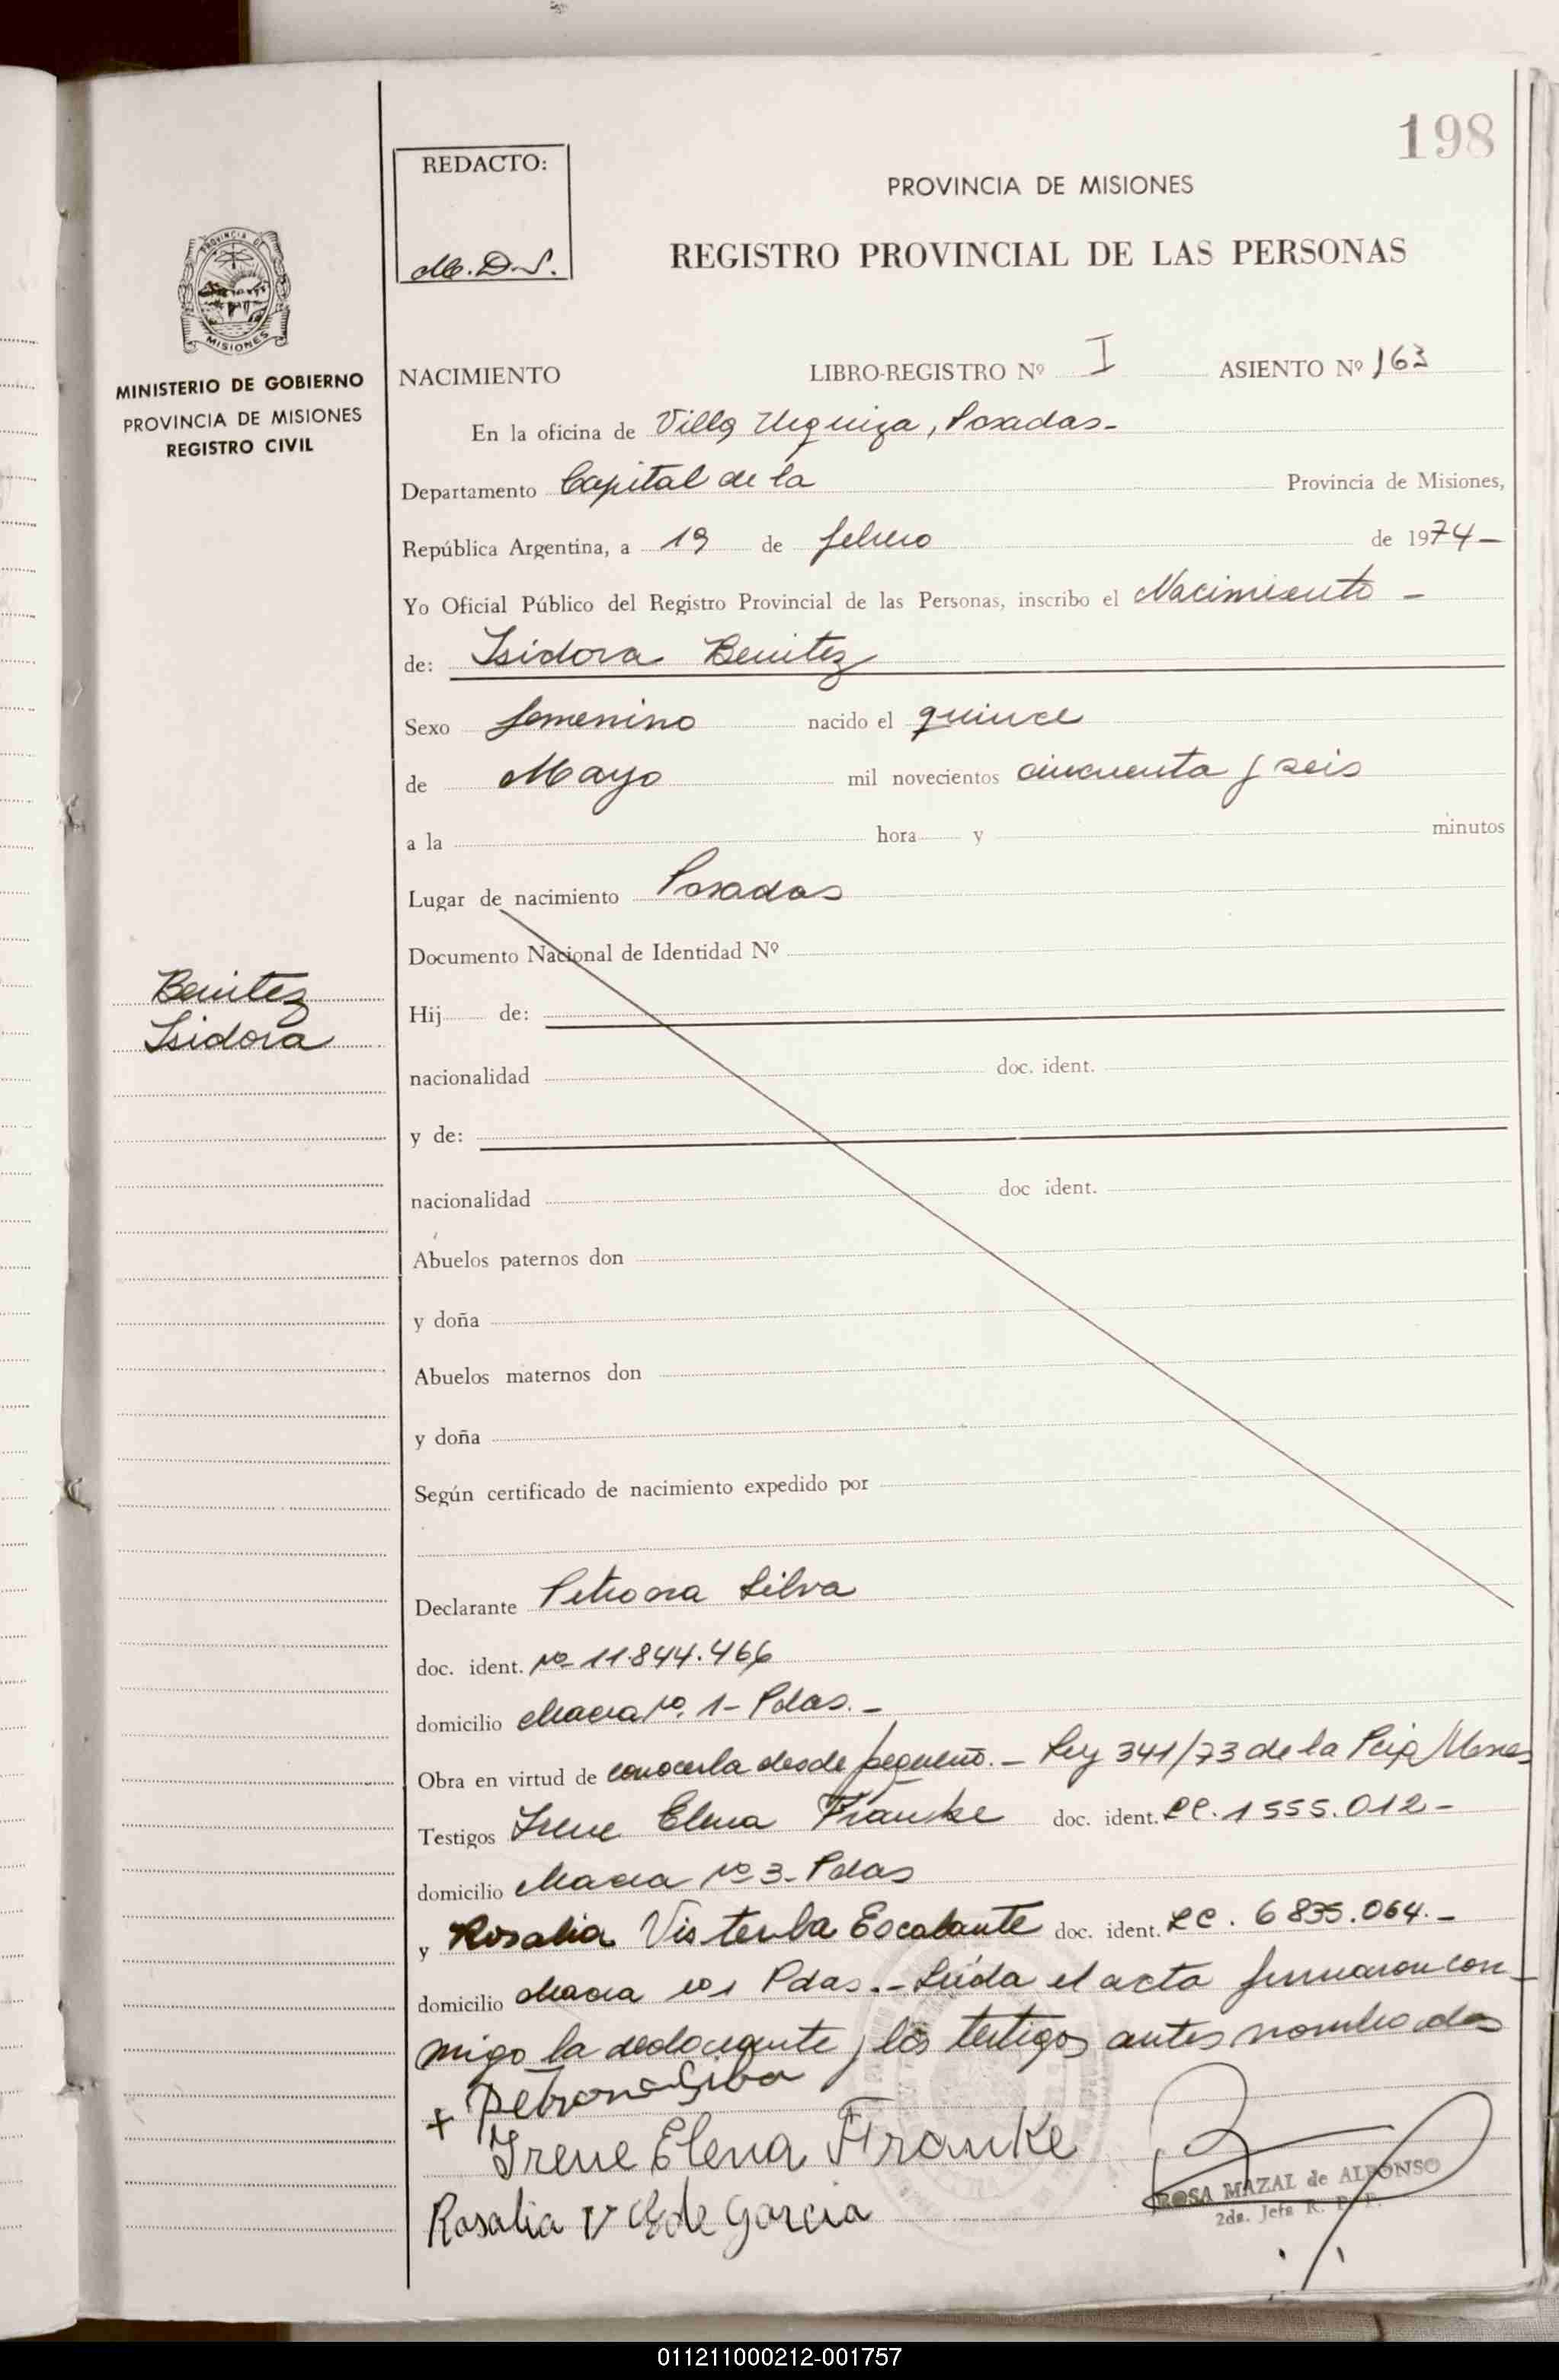 198
REDACTO:
M. D. S.
PROVINCIA DE MISIONES
REGISTRO PROVINCIAL DE LAS PERSONAS
PROVINCIA DE
MISIONES
MINISTERIO DE GOBIERNO
PROVINCIA DE MISIONES
REGISTRO CIVIL
NACIMIENTO LIBRO-REGISTRO Nº I ASIENTO Nº 163
En la oficina de Villa Urquiza, Posadas-
Departamento Capital de la Provincia de Misiones,
República Argentina, a 19 de febrero de 1974-
Yo Oficial Público del Registro Provincial de las Personas, inscribo el Nacimiento -
de: Isidora Benitez
Sexo femenino nacido el quince
de Mayo mil novecientos cincuenta y seis
a la hora y minutos
Lugar de nacimiento Posadas
Documento Nacional de Identidad Nº
Benitez
Isidora
Hij de:
nacionalidad doc. ident.
y de:
nacionalidad doc ident.
Abuelos paternos don
y doña
Abuelos maternos don
y doña
Según certificado de nacimiento expedido por
Declarante Petrona Silva
doc. ident. Nº 11.844.466
domicilio Chacra Nº. 1- Pdas.-
Obra en virtud de conocerla desde pequeño.- Ley 341/73 de la Pcia Mnes
Testigos Irene Elena Franke doc. ident. LC. 1555.012-
domicilio Chacra Nº 3- Pdas
y Rosalia Escalante doc. ident. LC. 6835.064.-
domicilio Chacra Nº 1 Pdas.- Leída el acta firmaron con-
migo la declarante y los testigos antes nombrados
+ Petrona Silva
Irene Elena Franke
Rosalia V de Garcia
ROSA MAZAL de ALFONSO
2da. Jefa R. P. P.
011211000212-001757